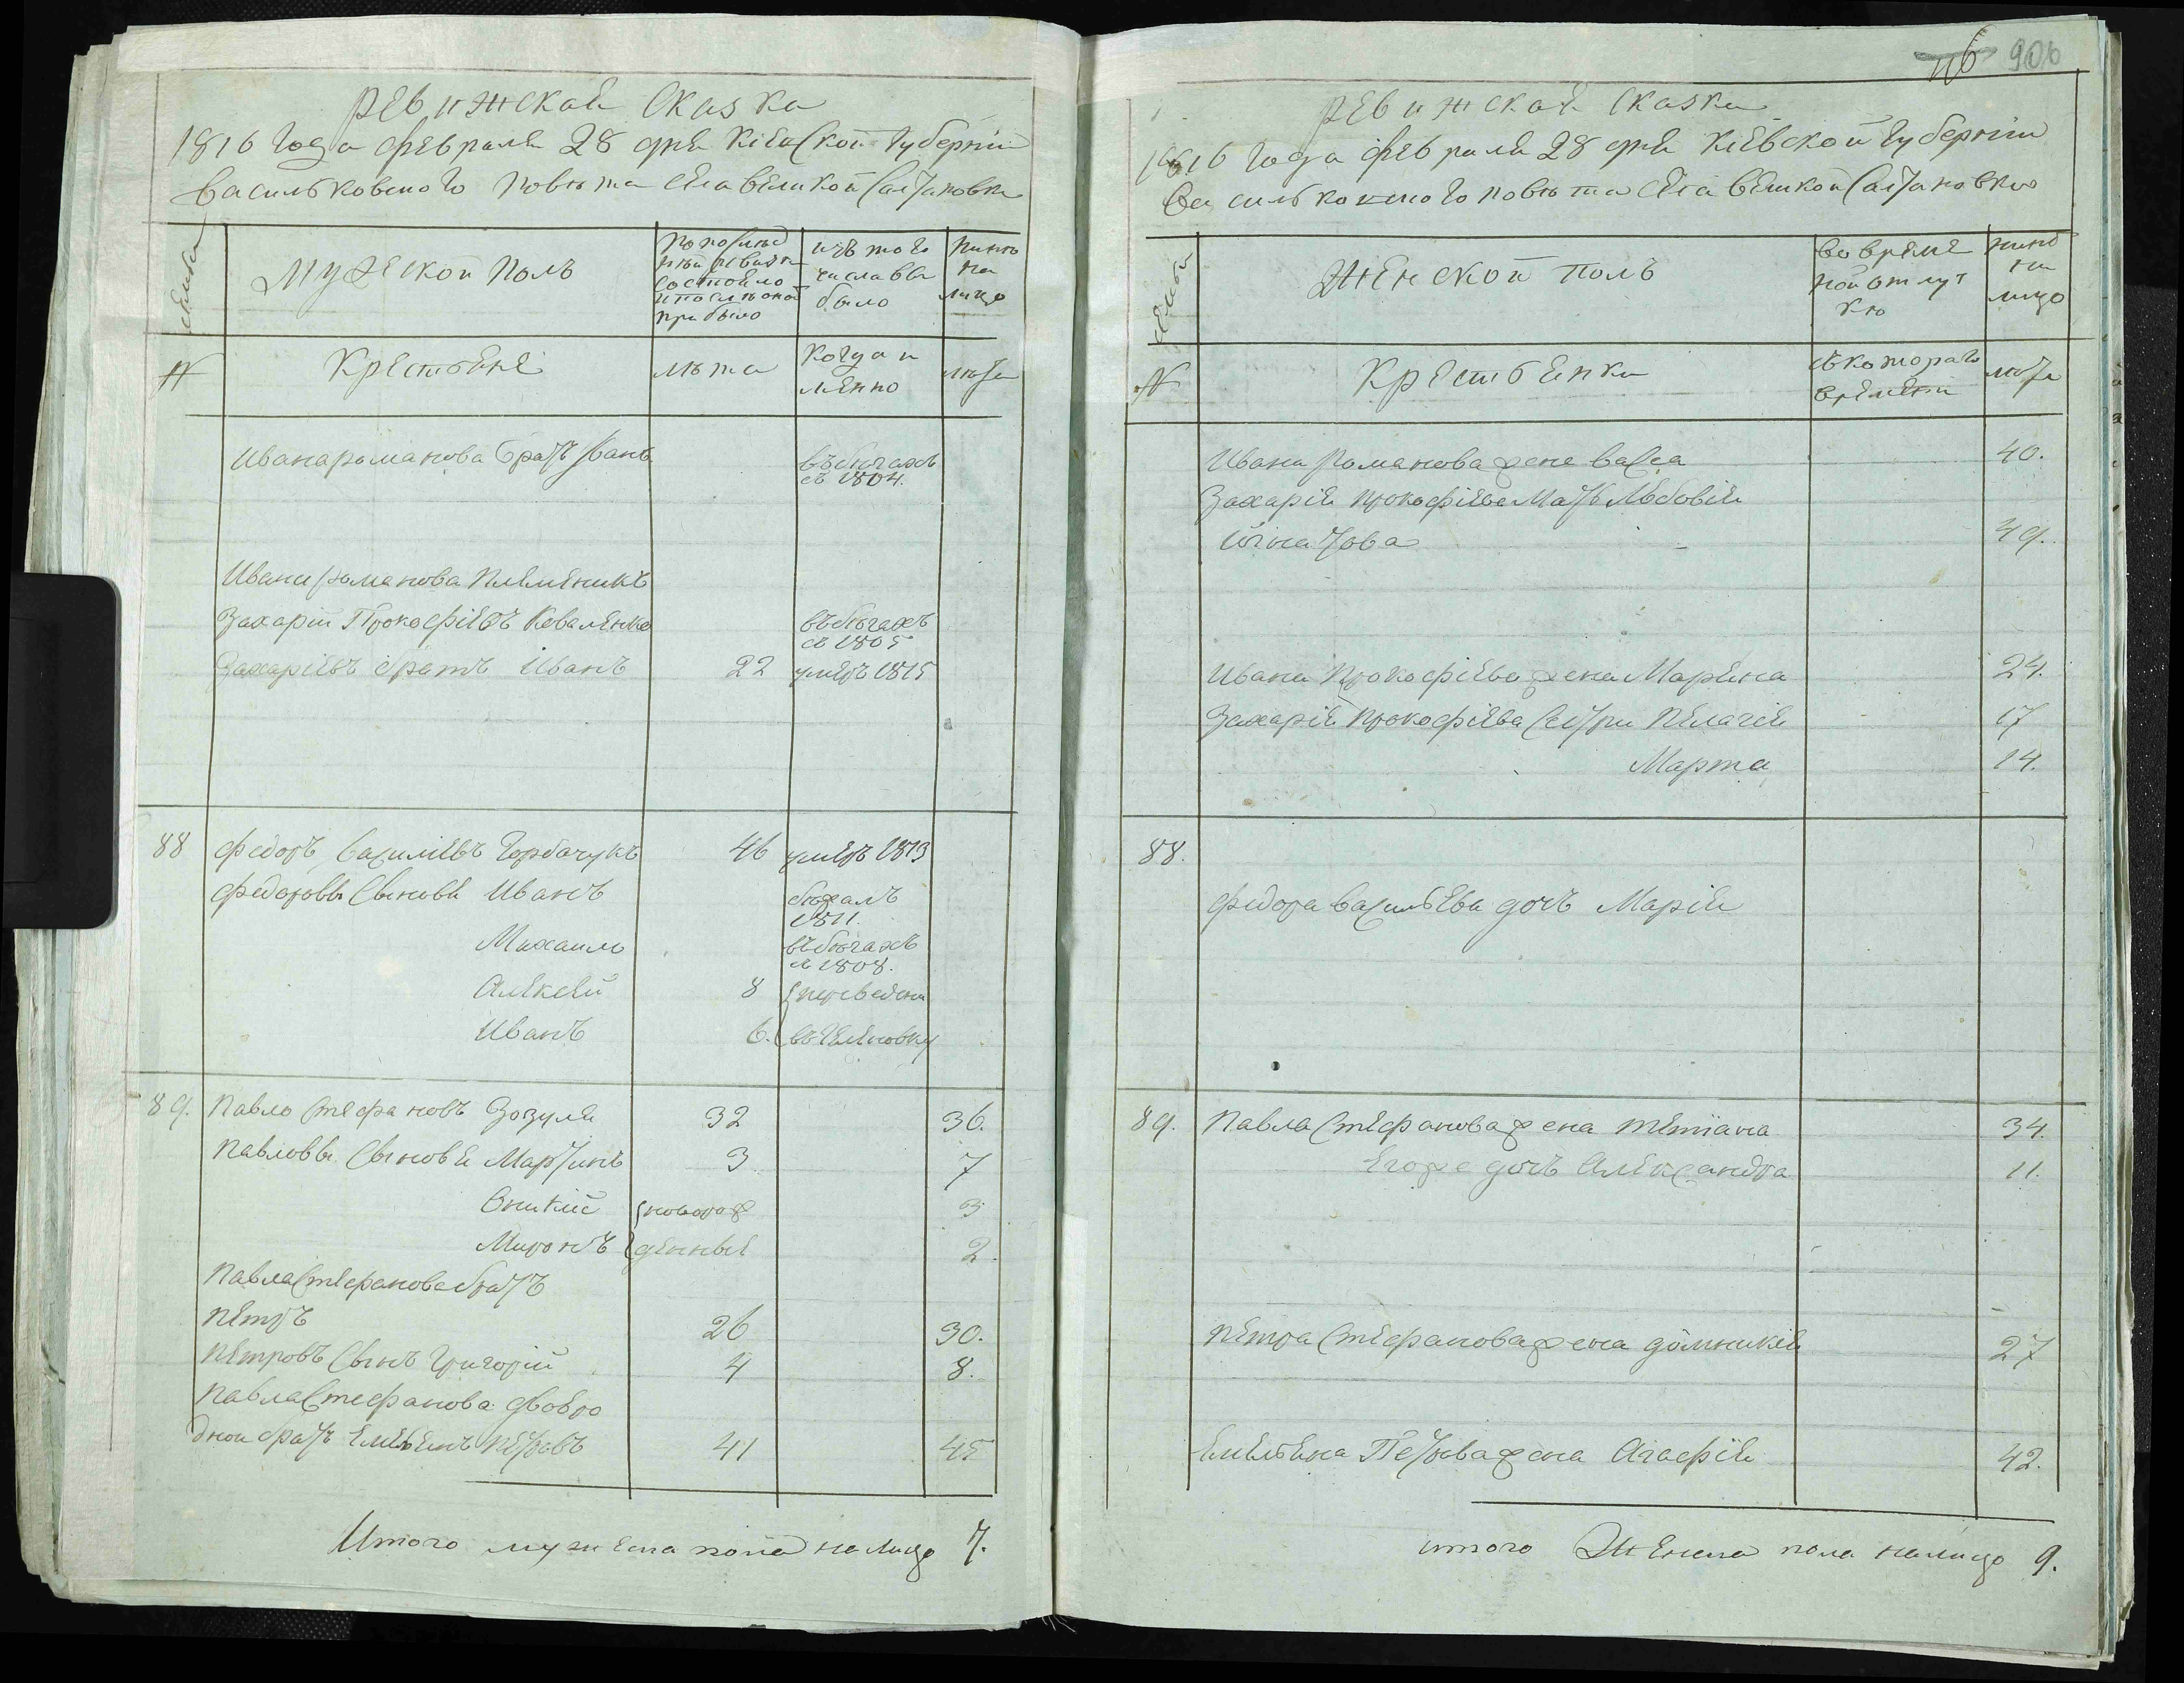 Ревижская Сказка
1816 года февраля 28 дня Киевской губернии
Васильковского повета села великой Салтановки
семьи
Мужеской полъ
По последней ревизии состояло и после оной прибыло
изъ того числа выбыло
ныне на лицо
№
Крестьяне
лета
когда именно
лета
Ивана романова братъ Иванъ въ бегахъ съ 1804.
Ивана романова племеникъ
Захарий Прокофиевъ Коваленко въ бегахъ съ 1805
Захариевъ братъ Иванъ 22 умеръ 1815
88 Федоръ Василиевъ Горбачукъ 46 умеръ 1813
Федоровы сыновя Иванъ бежалъ 1811.
Михаило въ бегахъ съ 1808.
Алексей 8 переведены
Иванъ 6. въ
89. Павло Стефановъ Зозуля 32 36.
Павловы сыновя Мартинъ 3 7
Оникий новорож 3
Миронъ денные 2.
Павла Стефанова братъ
Петръ 26 30.
Петровъ сынъ Григорий 4 8.
Павла Стефанова двоюро
дной братъ Емельянъ Петровъ 41 45
Итого мужеска пола налицо 7.
116 906
Ревижская Сказка
1816 года февраля 28 дня Киевской губернии
Васильковского повета села великой Салтановки
семьи
Женской полъ
Во временной отлучке
ныне на лицо
№
Крестьянки
съ которого времени
лета
Ивана Романова жена Васса 40.
Захария Прокофиева мать
49.
Ивана Прокофиева жена Марина 24.
Захария Прокофиева сестры Пелагия 17
Марта 14.
88.
Федора Васильева дочь Мария
89. Павла Стефанова жена Тетиана 34.
Его же дочь Александра 11.
Петра Стефанова жена Домникия 27
Емельяна Петрова жена Агафия 42.
итого Женска пола налицо 9.